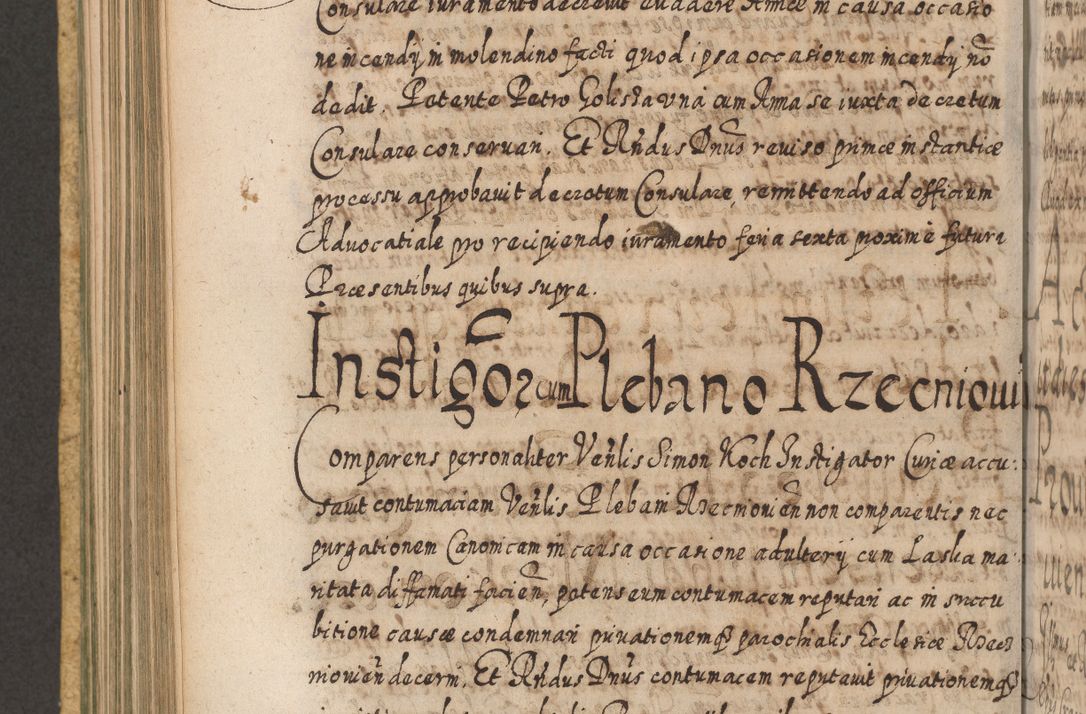 Consulare iuramento decrevit evadere Annæ in causa occasio
ne incendij in molendino facti quod ipsa occasionem incendij nō
dedit. Petente Petro Golista unà cum Anna se iuxta decretum
Consulare conservari. Et Rn̄dus Dnūs reviso primæ instantiæ
processu approbavit decretum Consulare, remittendo ad officium
Advocatiale pro recipiendo iuramento feria sexta proximè futura
Præsentibus quibus supra.
Instigōr cum Plebano Rzecniovi
Comparens personaliter Ven̄lis Simon Koch Instigator Curiæ accu
savit contumaciam Ven̄lis Plebani Rzecniovien̄ non comparentis nec
purgationem Canonicam in causa occasione adulterij cum Laska ma
ritata diffamati facien̄, petens eum contumacem reputari ac in succu
bitione causæ condemnari privationemq₃ parochialis Ecclesiæ Rzecz
niovien̄ decerni. Et Rn̄dus Dnūs contumacem reputavit privationemq₃